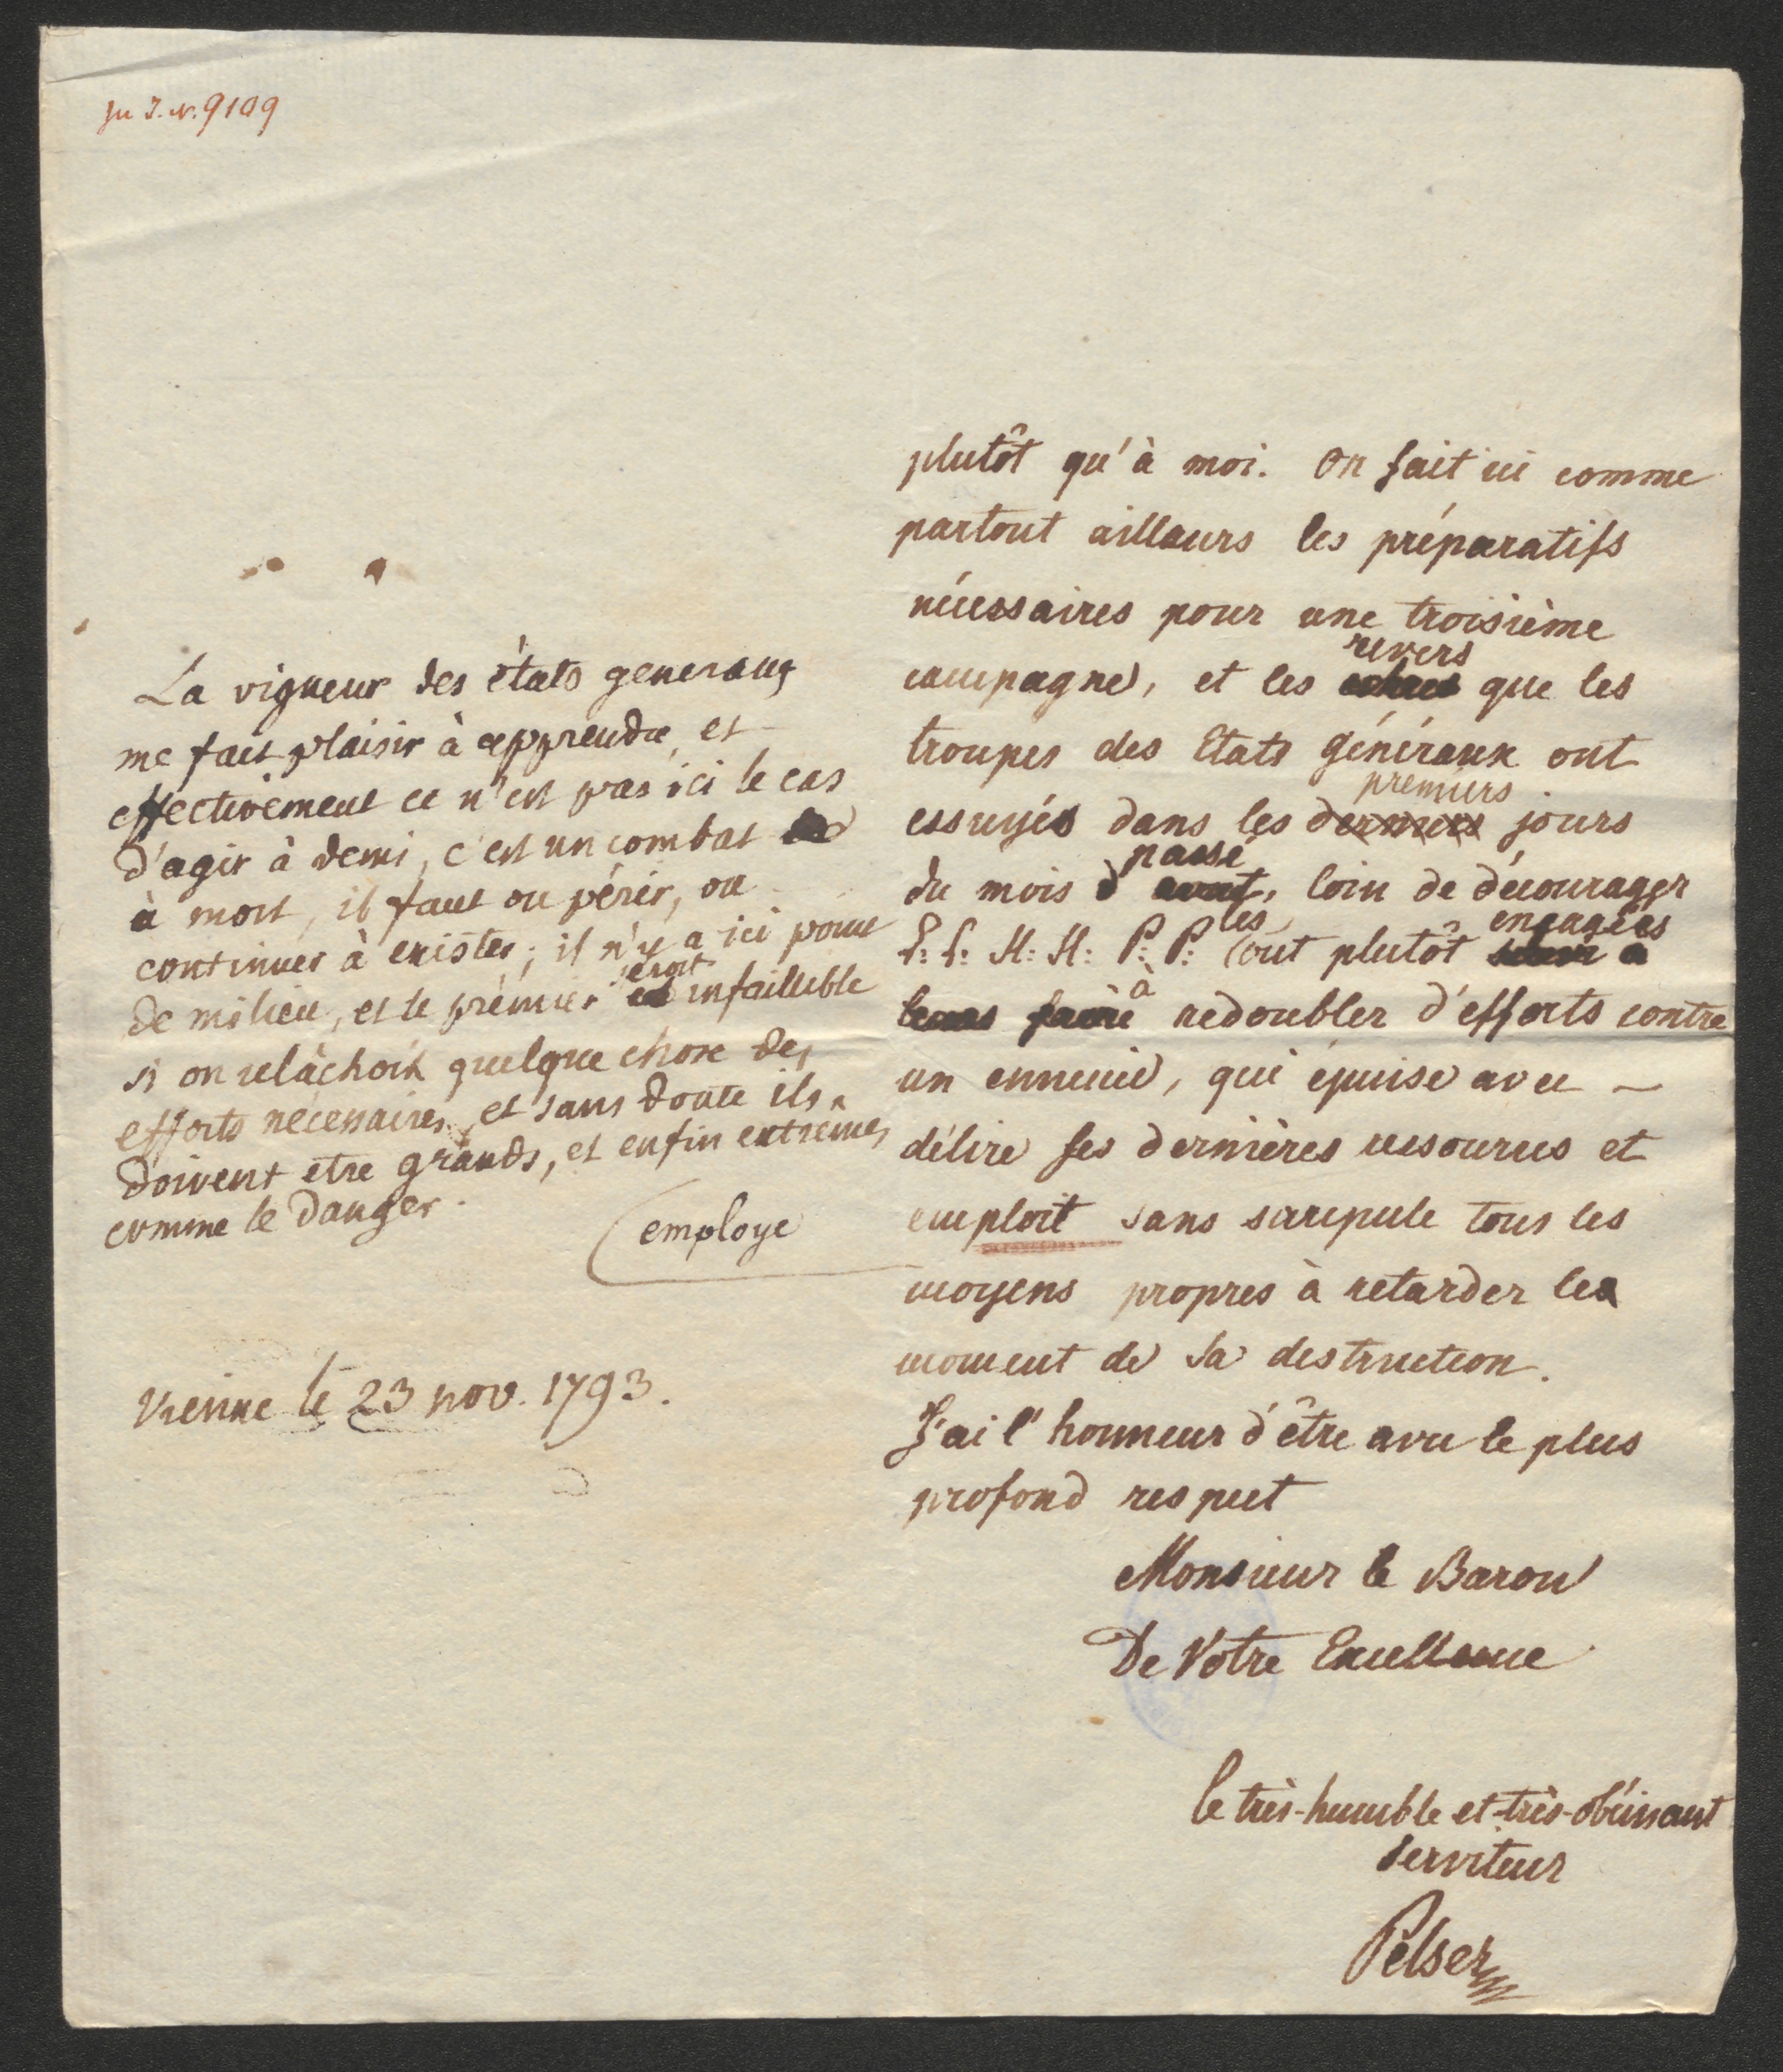 Zu I. N. 9109
La vigueur des états generaux
me fait plaisir à apprendre, et
effectivement ce n'est pas ici le cas
d'agir à demi, c'est un combat
à mort, il faut ou périr, ou
continuer à exister; il n'y a ici point
seroit
de milieu, et le prémier infaillible
si on relâchoit quelque chose des
efforts nécessaires, et sans doute ils
doivent etre grands, et enfin extremes
comme le danger.
employe
Vienne le 23 nov. 1793.
plutôt qu'à moi. On fait ici comme
partout ailleurs les préparatifs
nécessaires pour une troisième
revers
campagne, et les que les
troupes des Etats Généraux ont
premiers
essuyés dans les derniers jours
passé
du mois d'avant, loin de décourager
les engagées
L: L: H: H: P: P: ont plutôt
à
leurs faire redoubler d'efforts contre
un ennemie, qui épuise avec
délire ses dernières resources et
emploit sans scrupule tous les
moyens propres à retarder le
moment de sa destruction.
J'ai l'honneur d'être avec le plus
profond respect
Monsieur le Baron
De Votre Excellence
le très-humble et très-obéissant
serviteur
Pelser